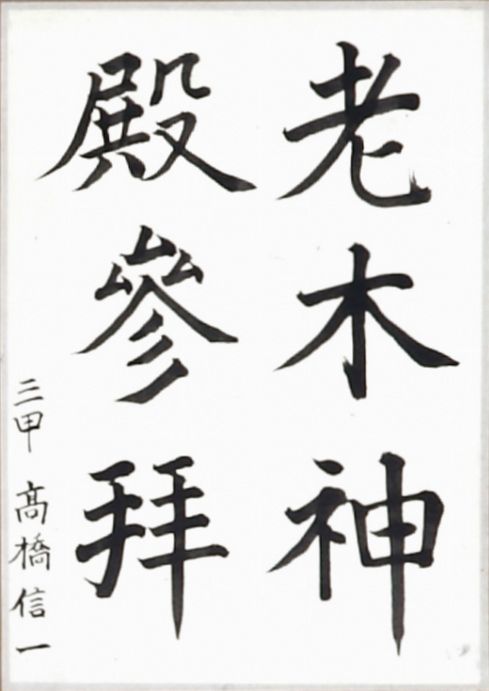 老木神
殿參拜
三甲 髙橋信一